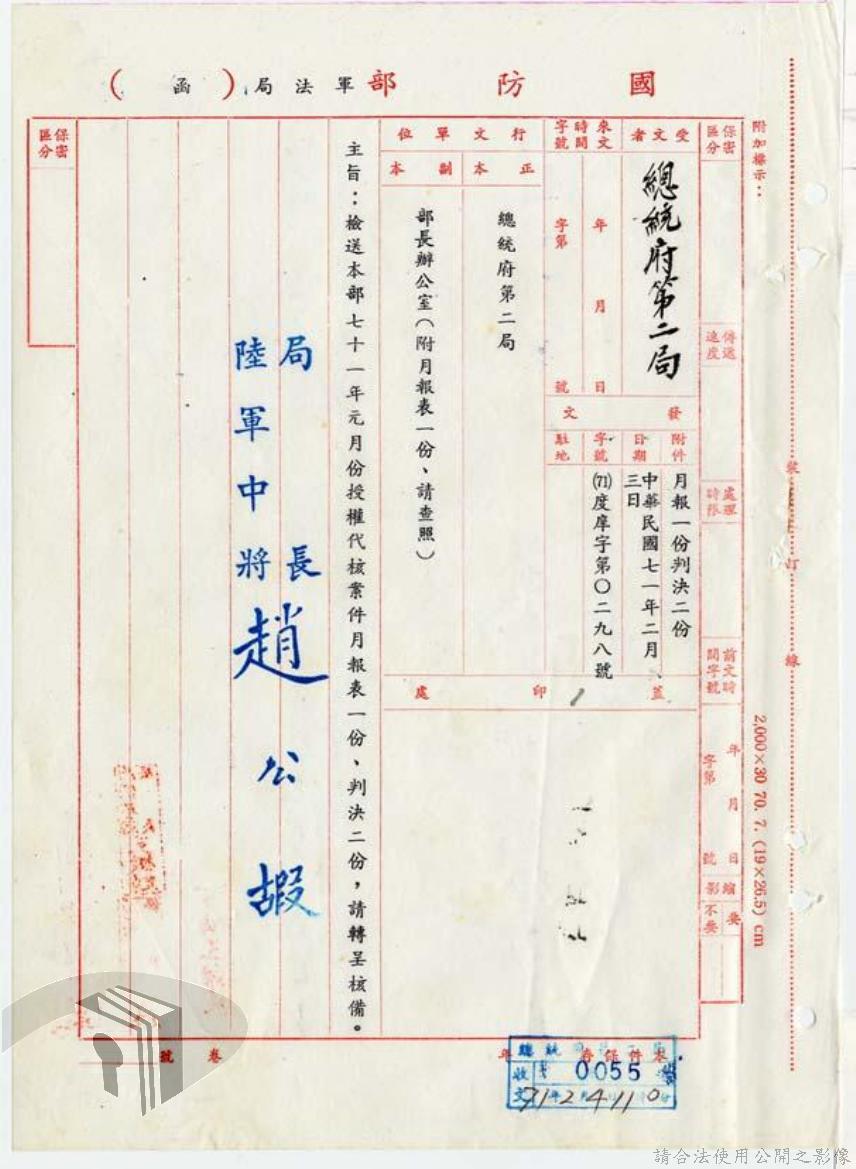 國防部軍法局(函)
附加標示：
裝訂線
2,000×30 70.7.(19×26.5)cm
保密區分
傳遞速度
處理時限
前文時間字號
年月日
字第號
縮影
要
不要
受文者
總統府第二局
發文
附件
月報一份判決二份
日期
中華民國七一年二月、三日
字號
(71)度庠字第〇二九八號
駐地
來文時間字號
年月日
字第號
行文單位
正本
總統府第二局
副本
部長辦公室（附月報表一份、請查照）
蓋印處
主旨：檢送本部七十一年元月份授權代核案件月報表一份、判決二份，請轉呈核備。
局長
陸軍中將趙公嘏
保密區分
本件保存年
卷號
總統
收文
0055
71 2 4 11 0
請合法使用公開之影像